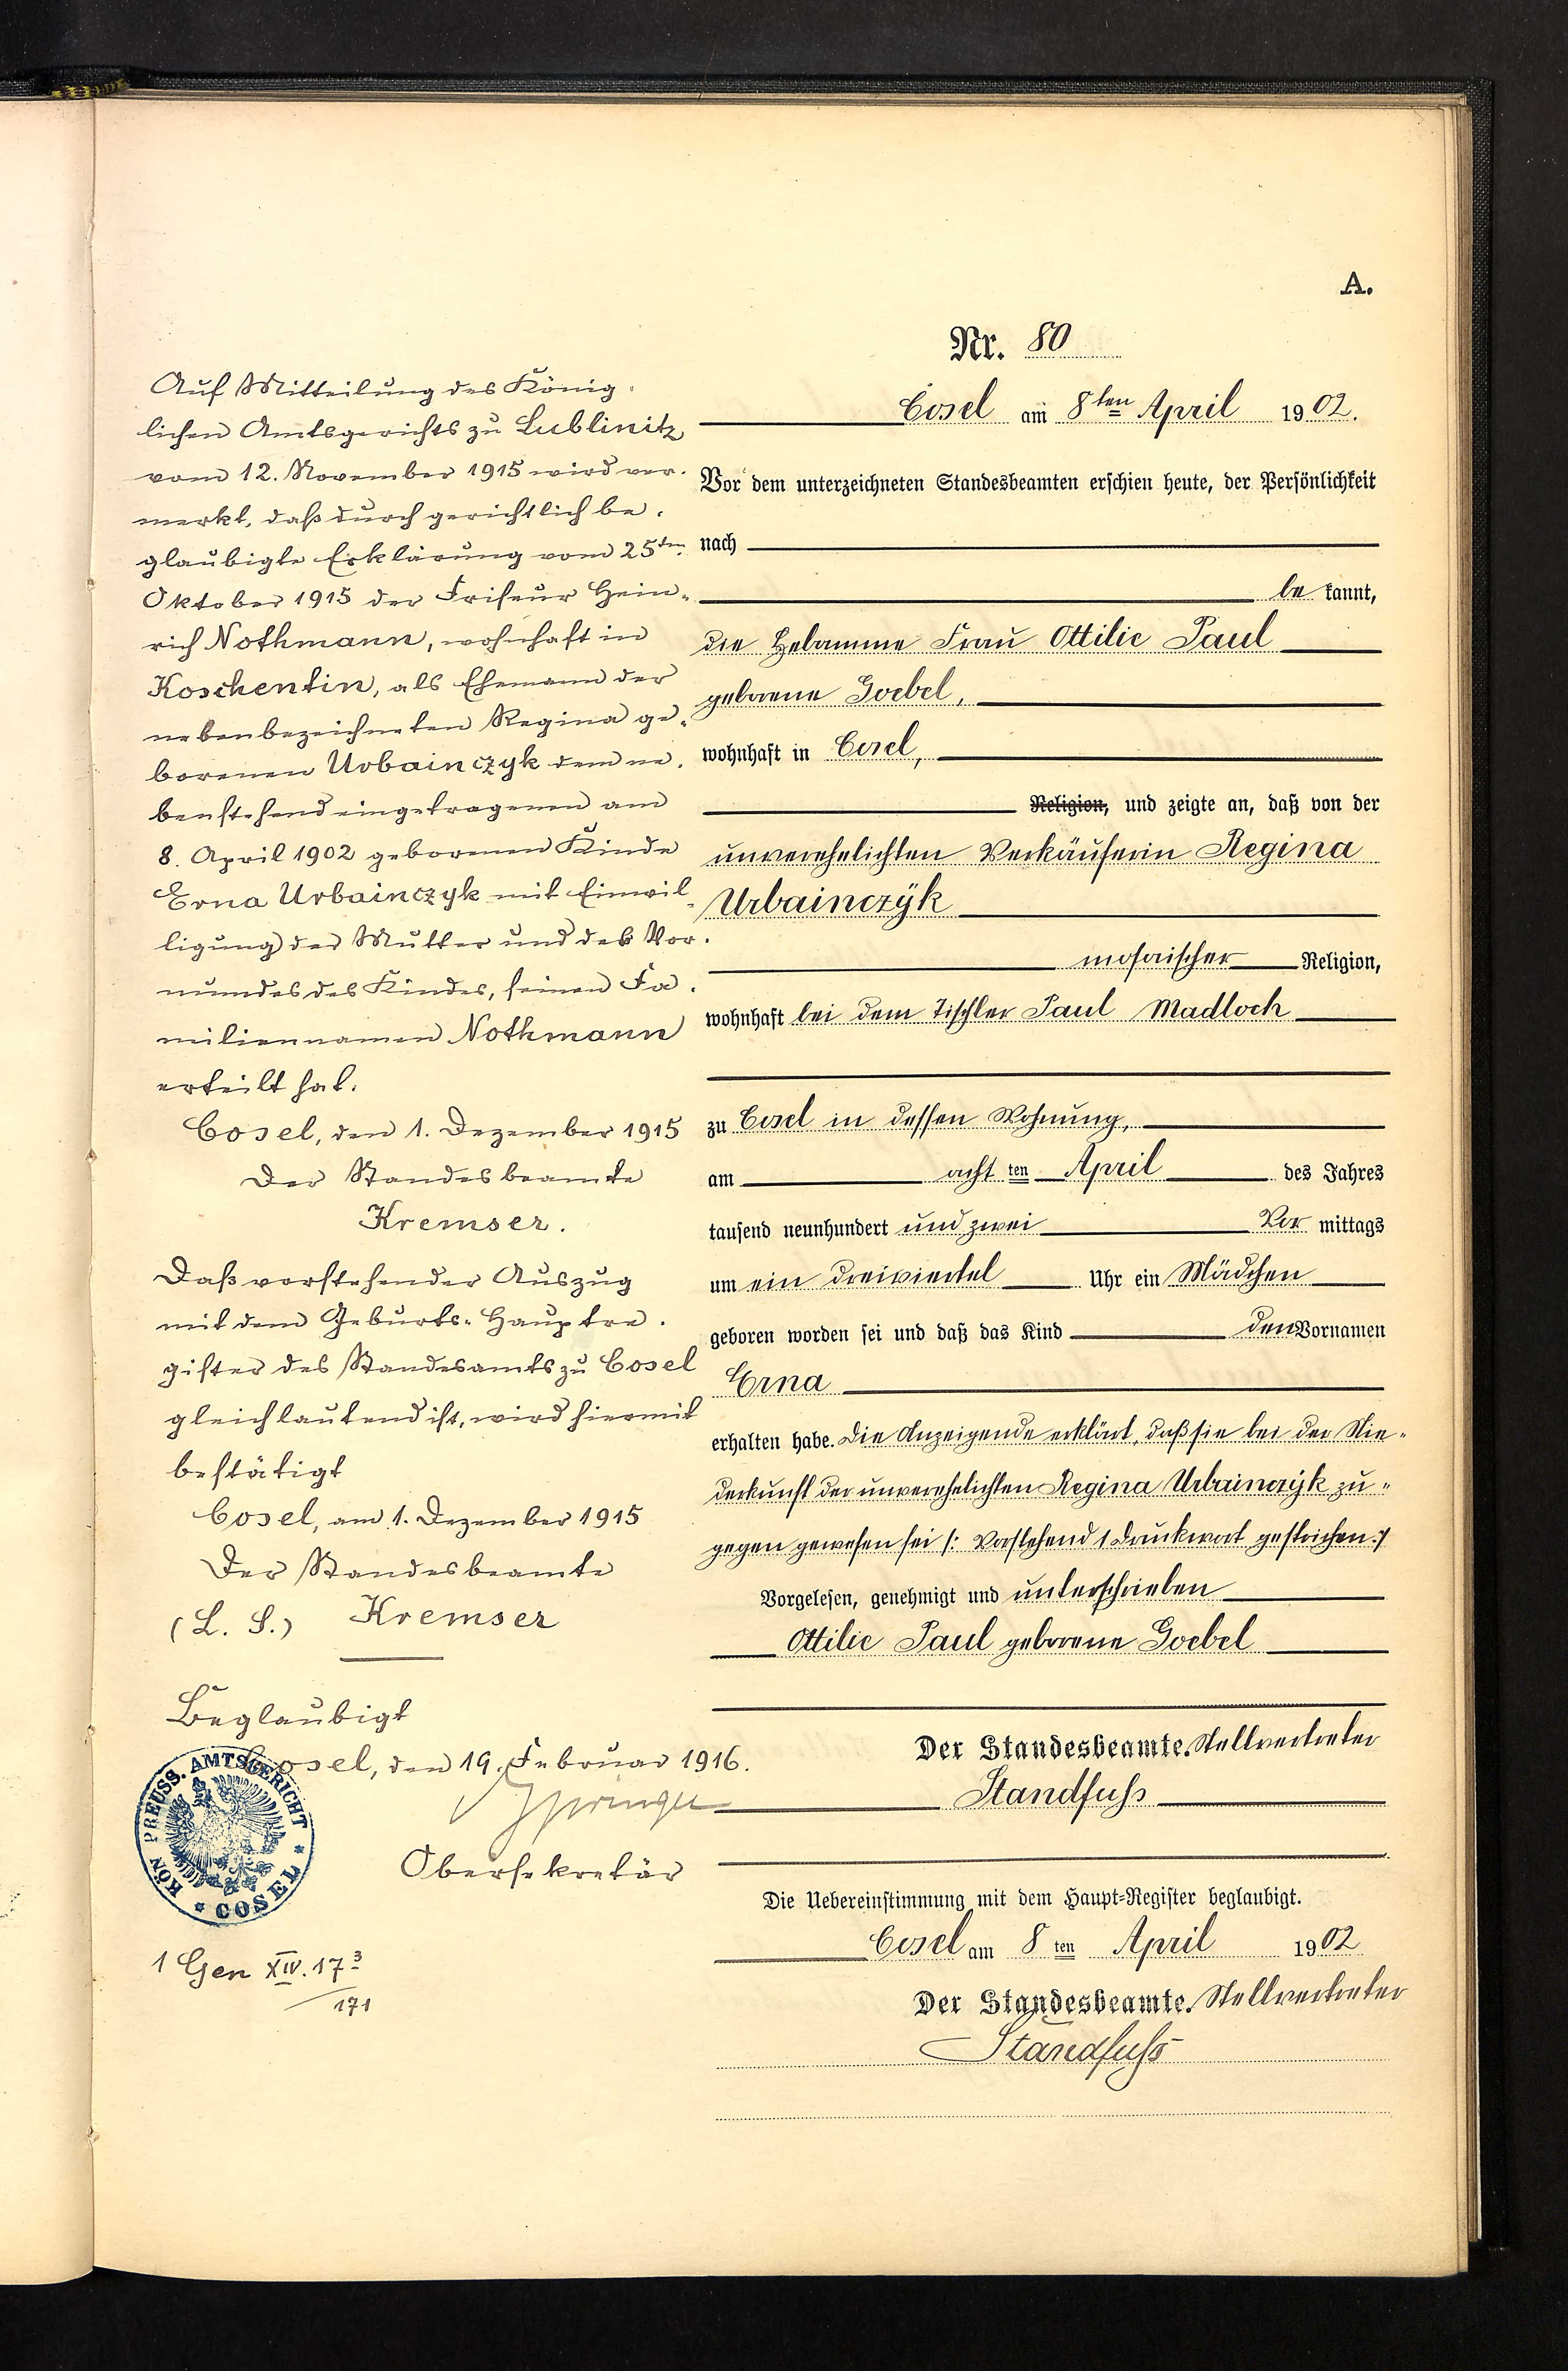 A.
Nr. 80
Cosel am 8ten April 1902.
Vor dem unterzeichneten Standesbeamten erschien heute, der Persönlichkeit
nach
be kannt,
die Hebamme Frau Ottilie Paul
geborene Goebel,
wohnhaft in Cosel,
Religion, und zeigte an, daß von der
unverehelichten Verkäuferin Regina
Urbainczÿk
mosaischer Religion,
wohnhaft bei dem Tischler Paul Madloch
zu Cosel in dessen Wohnung,
am acht ten April des Jahres
tausend neunhundert und zwei Vor mittags
um ein dreiviertel Uhr ein Mädchen
geboren worden sei und daß das Kind den Vornamen
Erna
erhalten habe. Die Anzeigende erklärt, daß sie bei der Nie-
derkunft der unverehelichten Regina Urbainczÿk zu-
gegen gewesen sei /: Vorstehend 1 Druckwort gestrichen :/
Vorgelesen, genehmigt und unterschrieben
Ottilie Paul geborene Goebel
Der Standesbeamte. Stellvertreter
Standfuß
Die Uebereinstimmung mit dem Haupt-Register beglaubigt.
Cosel am 8 ten April 1902
Der Standesbeamte. Stellvertreter
Standfuß
Auf Mitteilung des König-
lichen Amtsgerichts zu Lublinitz
vom 12. November 1915 wird ver-
merkt, daß durch gerichtlich be-
glaubigte Erklärung vom 25ten
Oktober 1915 der Friseur Hein-
rich Nothmann, wohnhaft in
Koschentin, als Ehemann der
nebenbezeichneten Regina ge-
borenen Urbainczyk dem ne-
benstehend eingetragenen am
8. April 1902 geborenen Kinde
Erna Urbainczyk mit Einwil-
ligung der Mutter und des Vor-
mundes des Kindes, seinen Fa-
miliennamen Nothmann
erteilt hat.
Cosel, den 1. Dezember 1915
Der Standesbeamte
Kremser.
Daß vorstehender Auszug
mit dem Geburts-Hauptre-
gister des Standesamts zu Cosel
gleichlautend ist, wird hiermit
bestätigt
Cosel, am 1. Dezember 1915
Der Standesbeamte
(L. S.) Kremser
Beglaubigt
Cosel, den 19. Februar 1916.
Springer
Obersekretär
KÖN. PREUSS. AMTSGERICHT
* COSEL *
1 Gen XIV. 17 3
171